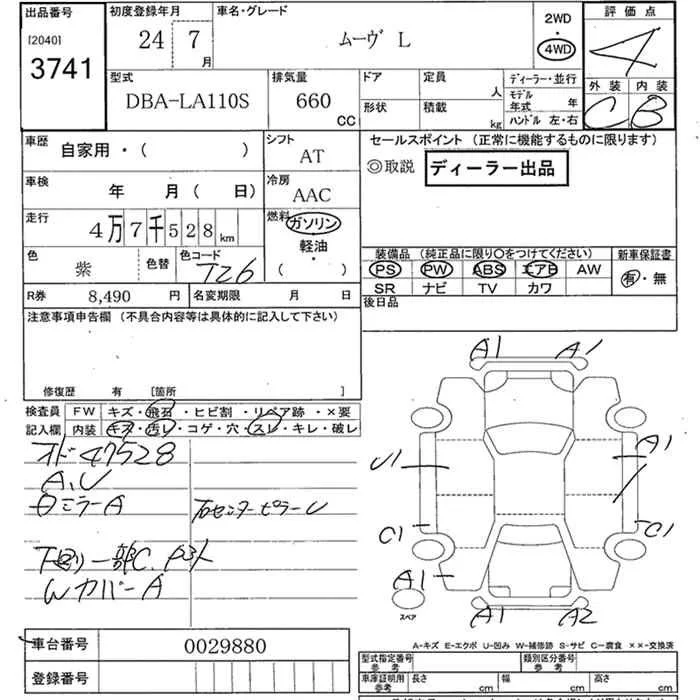 出品番号
[2040]
3741
初度登録年月
24 7
月
車名・グレード
ムーヴ L
2WD
・
4WD
評価点
4
外装 内装
C B
型式
DBA-LA110S
排気量
660
CC
ドア
定員
人
ディーラー・並行
形状
積載
kg
モデル
年式 年
ハンドル 左・右
車歴
自家用・( )
シフト
AT
セールスポイント (正常に機能するものに限ります)
◎取説 ディーラー出品
車検
年 月( 日)
冷房
AAC
走行
4万7千528km
燃料
ガソリン
軽油
・
( )
色
紫
色替
色コード
T26
装備品 (純正品に限り○をつけてください)
新車保証書
PS PW ABS エアB AW
有・無
SR ナビ TV カワ
R券
8,490 円
名変期限 月 日
後日品
注意事項申告欄 (不具合内容等は具体的に記入して下さい)
修復歴 有 [箇所 ]
検査員
記入欄
FW キズ・飛石・ヒビ割・リペア跡・×要
内装 キズ・汚レ・コゲ・穴・スレ・キレ・破レ
47528
A、U
ミラーA
右センターピラーU
下回り一部C、
WカバーA
A1 A1
U1 A1
C1 C1
A1
スペア
A1 A2
A-キズ E-エクボ U-凹み W-補修跡 S-サビ C-腐食 ××-交換済
車台番号
0029880
登録番号
型式指定番号
参考
類別区分番号
参考
車庫証明用
参考
長さ cm
幅 cm
高さ cm